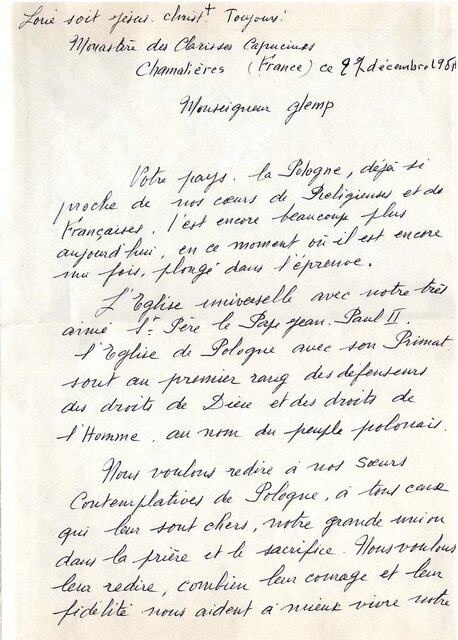 Loué soit Jésus. Christ + Toujours!
Monastère des Clarisses Capucines
Chamalières (France) ce 27 décembre 1981
Monseigneur glemp
Votre pays. la Pologne, déjà si
proche de nos cœurs de Religieuses et de
Françaises. l'est encore beaucoup plus
aujourd'hui, en ce moment où il est encore
une fois, plongé dans l'épreuve.
L'Eglise universelle avec notre très
aimé St. Père le Pape Jean-Paul II.
l'Eglise de Pologne avec son Primat
sont au premier rang des défenseurs
des droits de Dieu et des droits de
l'Homme. au nom du peuple polonais.
Nous voulons redire à nos Sœurs
Contemplatives de Pologne, à tous ceux
qui leur sont chers, notre grande union
dans la prière et le sacrifice. Nous voulons
leur redire, combien leur courage et leur
fidélité nous aident à mieux vivre notre